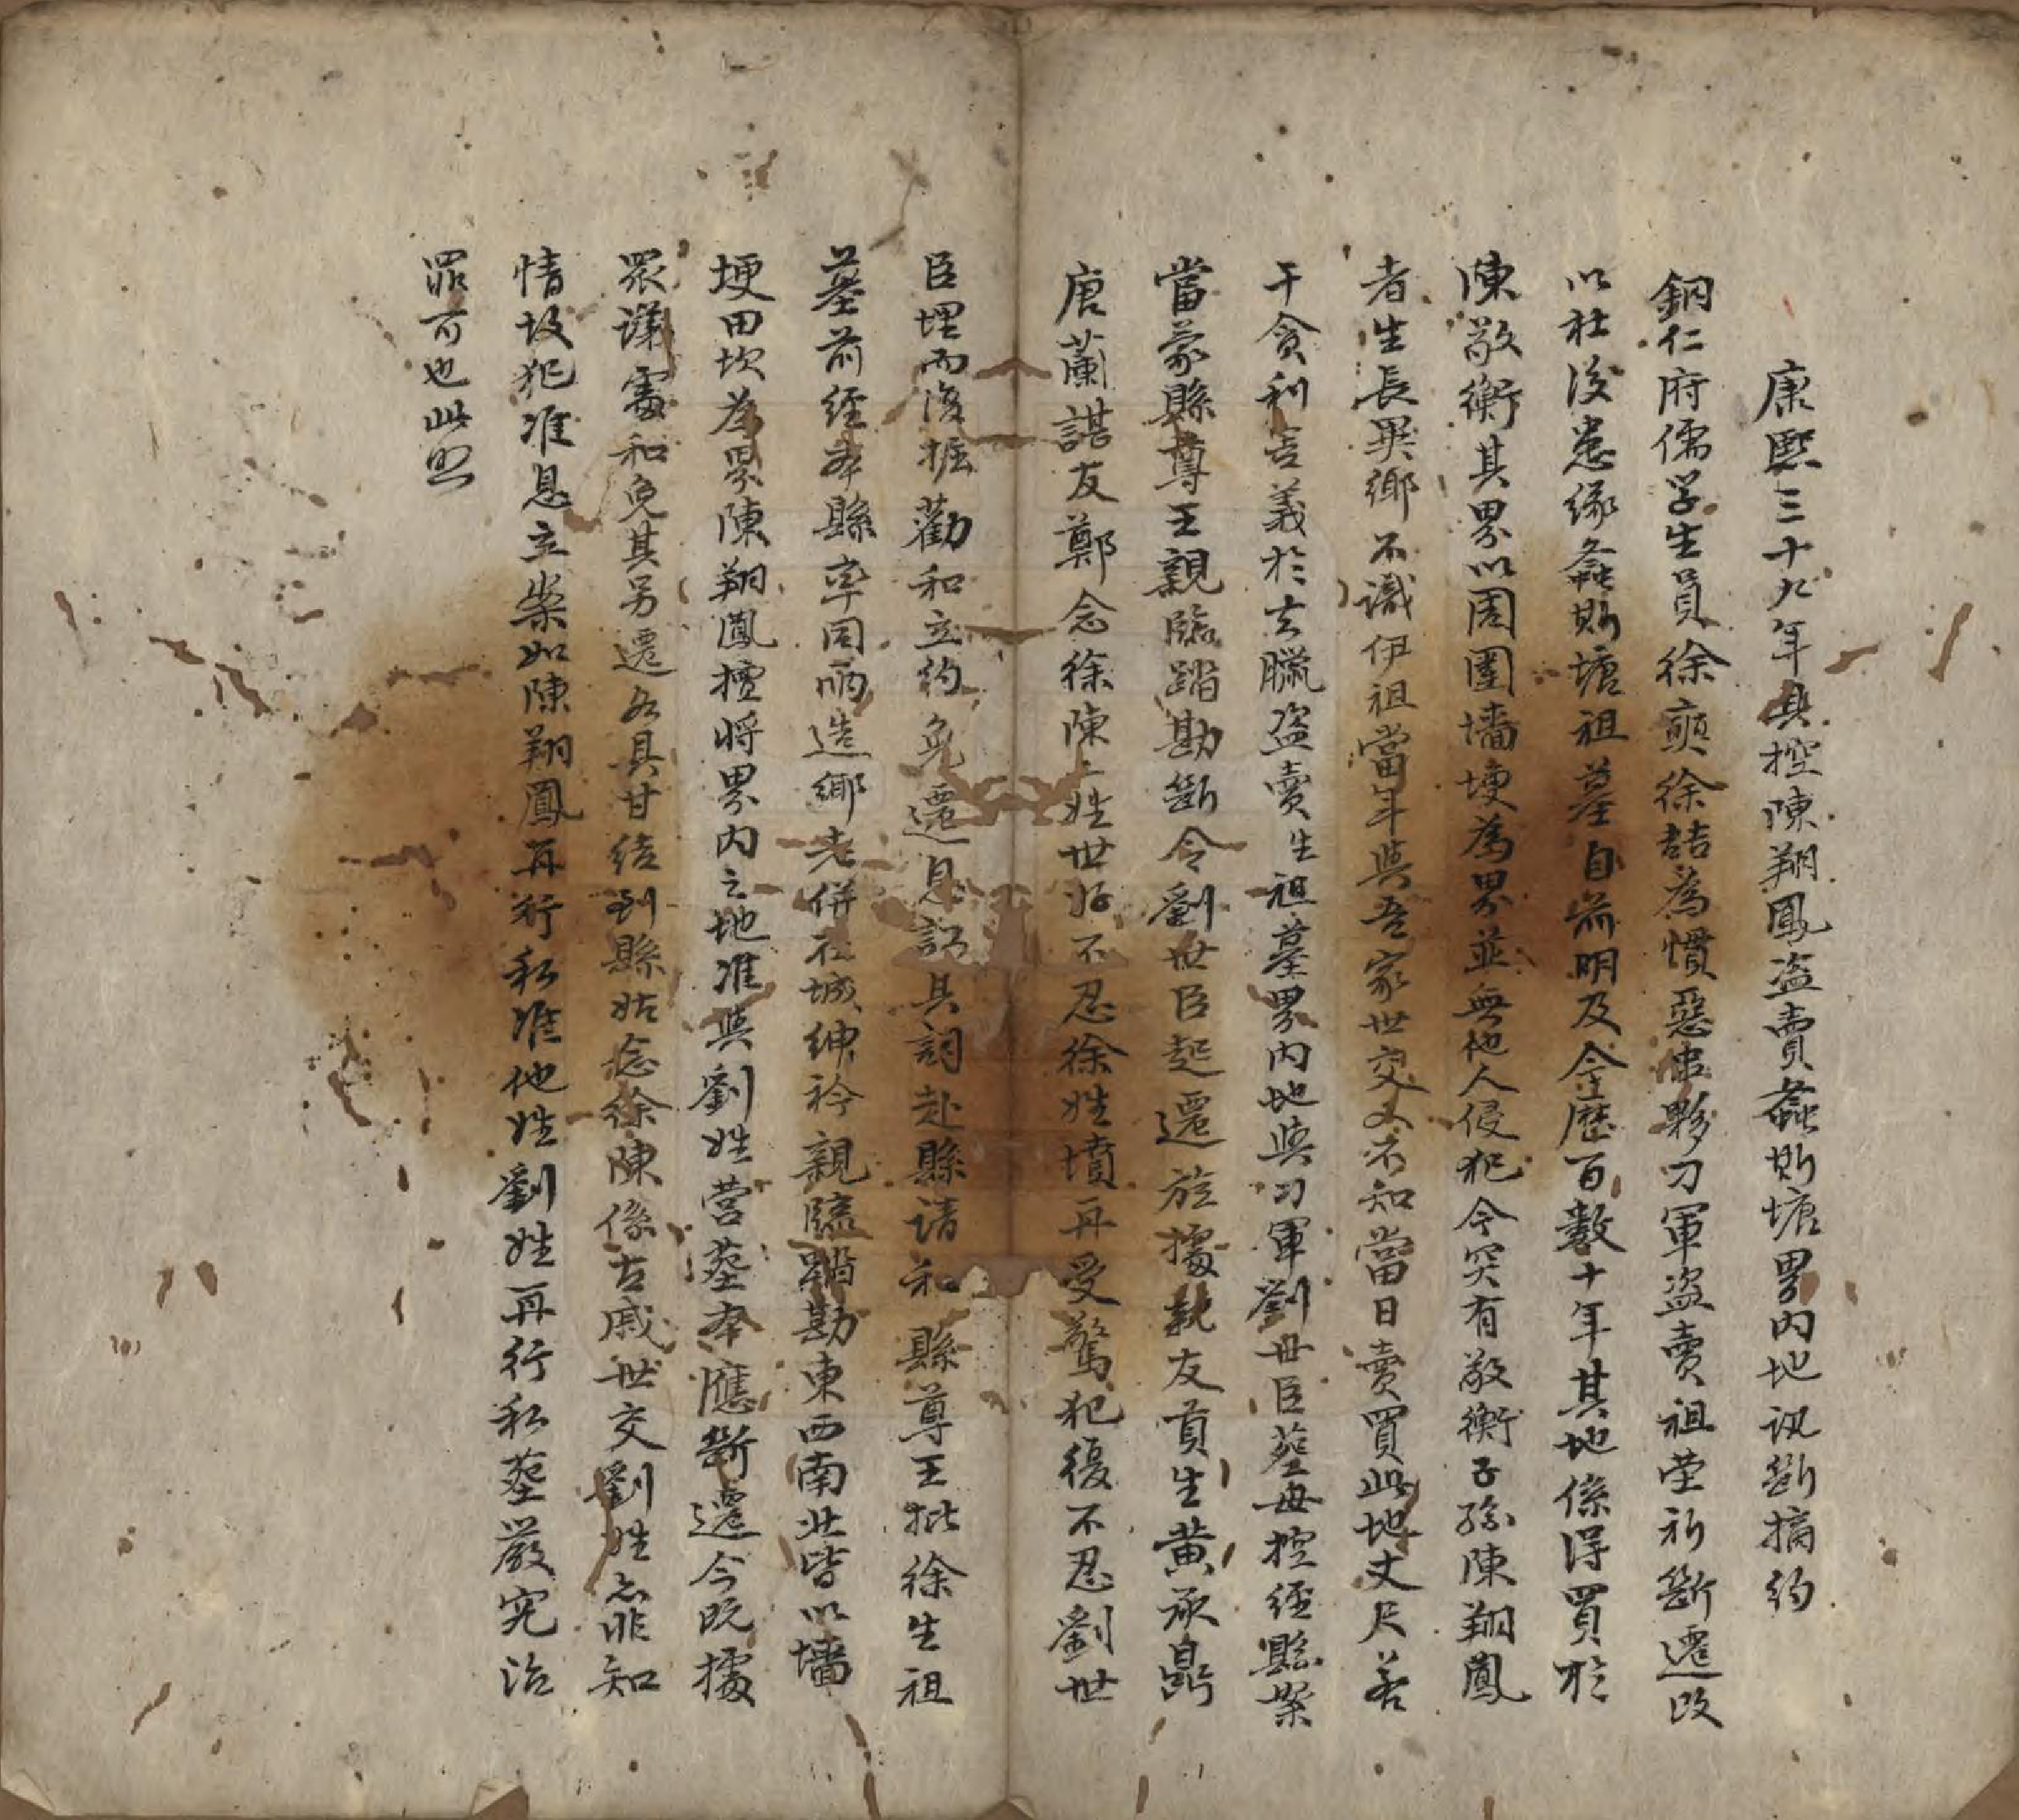 康熙三十九年具控陳翔鳳盗賣螽斯塘界内地訊斷摘約
銅仁府儒学生員徐顗徐喆為慣惡串夥刁軍盗賣祖塋祈斷遷改
以杜後患缘螽斯塘祖墓自前明及今歷百數十年其地係淂買於
陳敬衡其界以團圍墻埂為界並無他人侵犯今突有敬衡子孫陳翔鳳
者生長異鄉不識伊祖當年與吾家世交又不知當日賣買此地丈尺若
干貪利忘義於去臘盗賣生祖墓界内地與刁軍劉世臣塟母控經縣案
當蒙縣尊王親臨踏勘斷令劉世臣起遷旋據執友貢生黄承鼎
唐蘭諶友鄭念徐陳二姓世好不忍徐姓墳再受驚犯復不忍劉世
臣埋而復掘勸和立約免遷息訟具詞赴縣请和縣尊王批徐生祖
墓前經本縣率同両造鄉老併在城紳衿親臨踏勘東西南北皆以墻
埂田坎為界陳翔鳳擅將界内之地准與劉姓营塟本應斷遷今既據
眾議處和免其另遷各具甘结到縣姑念徐陳係古戚世交劉姓亦非知
情故犯准息立案如陳翔鳳再行私准他姓劉姓再行私塟嚴究治
罪可也此照